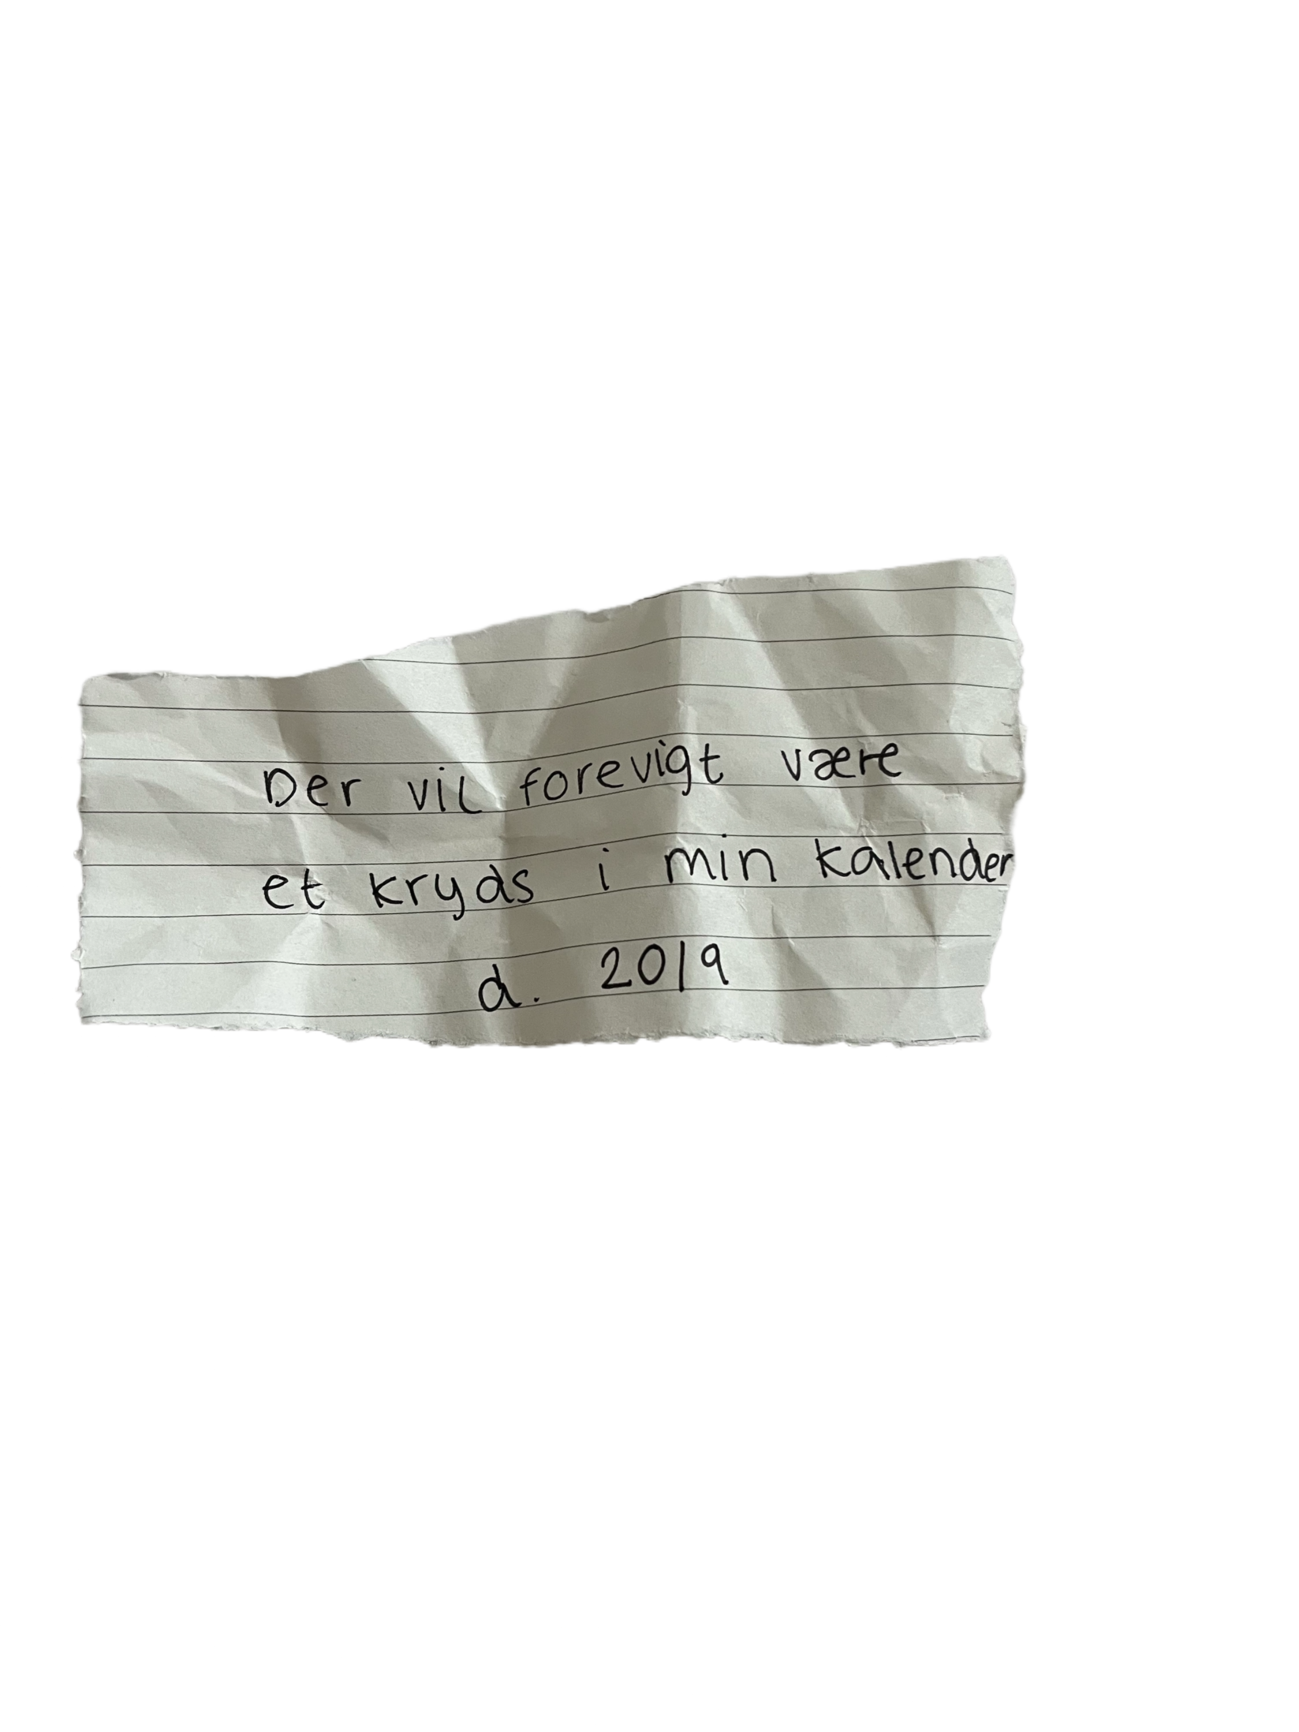 Der vil forevigt være
et kryds i min kalender
d. 2019